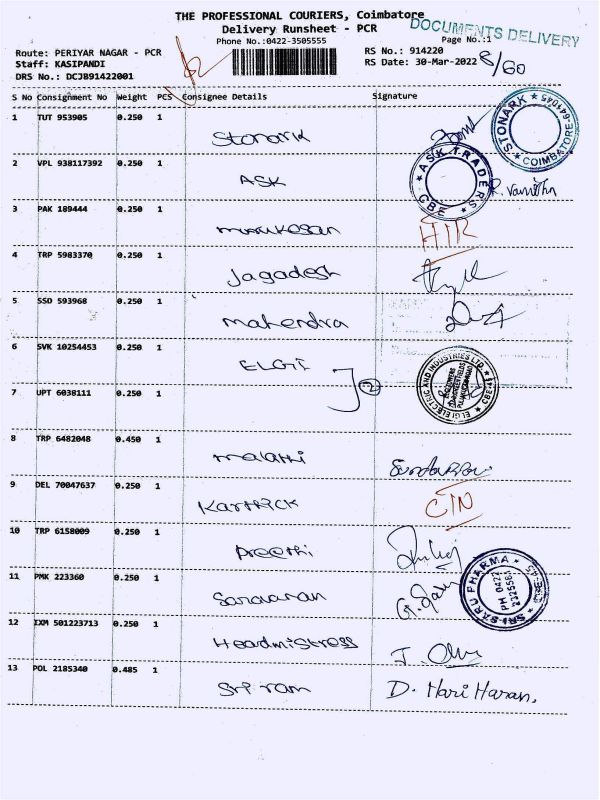 THE PROFESSIONAL COURIERS, Coimbatore
DOCUMENTS DELIVERY
Delivery Runsheet - PCR
Phone No.:0422-3505555
Page No.:1
Route: PERIYAR NAGAR - PCR
RS No.: 914220
Staff: KASIPANDI
RS Date: 30-Mar-2022
8/60
DRS No.: DCJB91422001
S No Consignment No Weight PCS Consignee Details Signature
1 TUT 953905 0.250 1 Stonark
STONARK * 641045 * COIMBATORE
2 VPL 938117392 0.250 1 ASK
* ASK TRADERS * CBE
R. Vanitha
3 PAK 189444 0.250 1 Murukesan
4 TRP 5983370 0.250 1 Jagadesh
5 SSD 593968 0.250 1 Mahendra
6 SVK 10254453 0.250 1 ELGI
2
ELGI ELECTRIC AND INDUSTRIES LTD. * CBE-45 *
7 UPT 6038111 0.250 1
8 TRP 6482048 0.450 1 Malathi
9 DEL 70047637 0.250 1 Karthick
10 TRP 6158009 0.250 1 Preethi
11 PMK 223360 0.250 1 Saravanan
* SRI SARU PHARMA * CBE-45
PH 0422
2325581
12 IXM 501223713 0.250 1 Headmistress
13 POL 2185340 0.485 1 Sri ram D. Hari Haran.